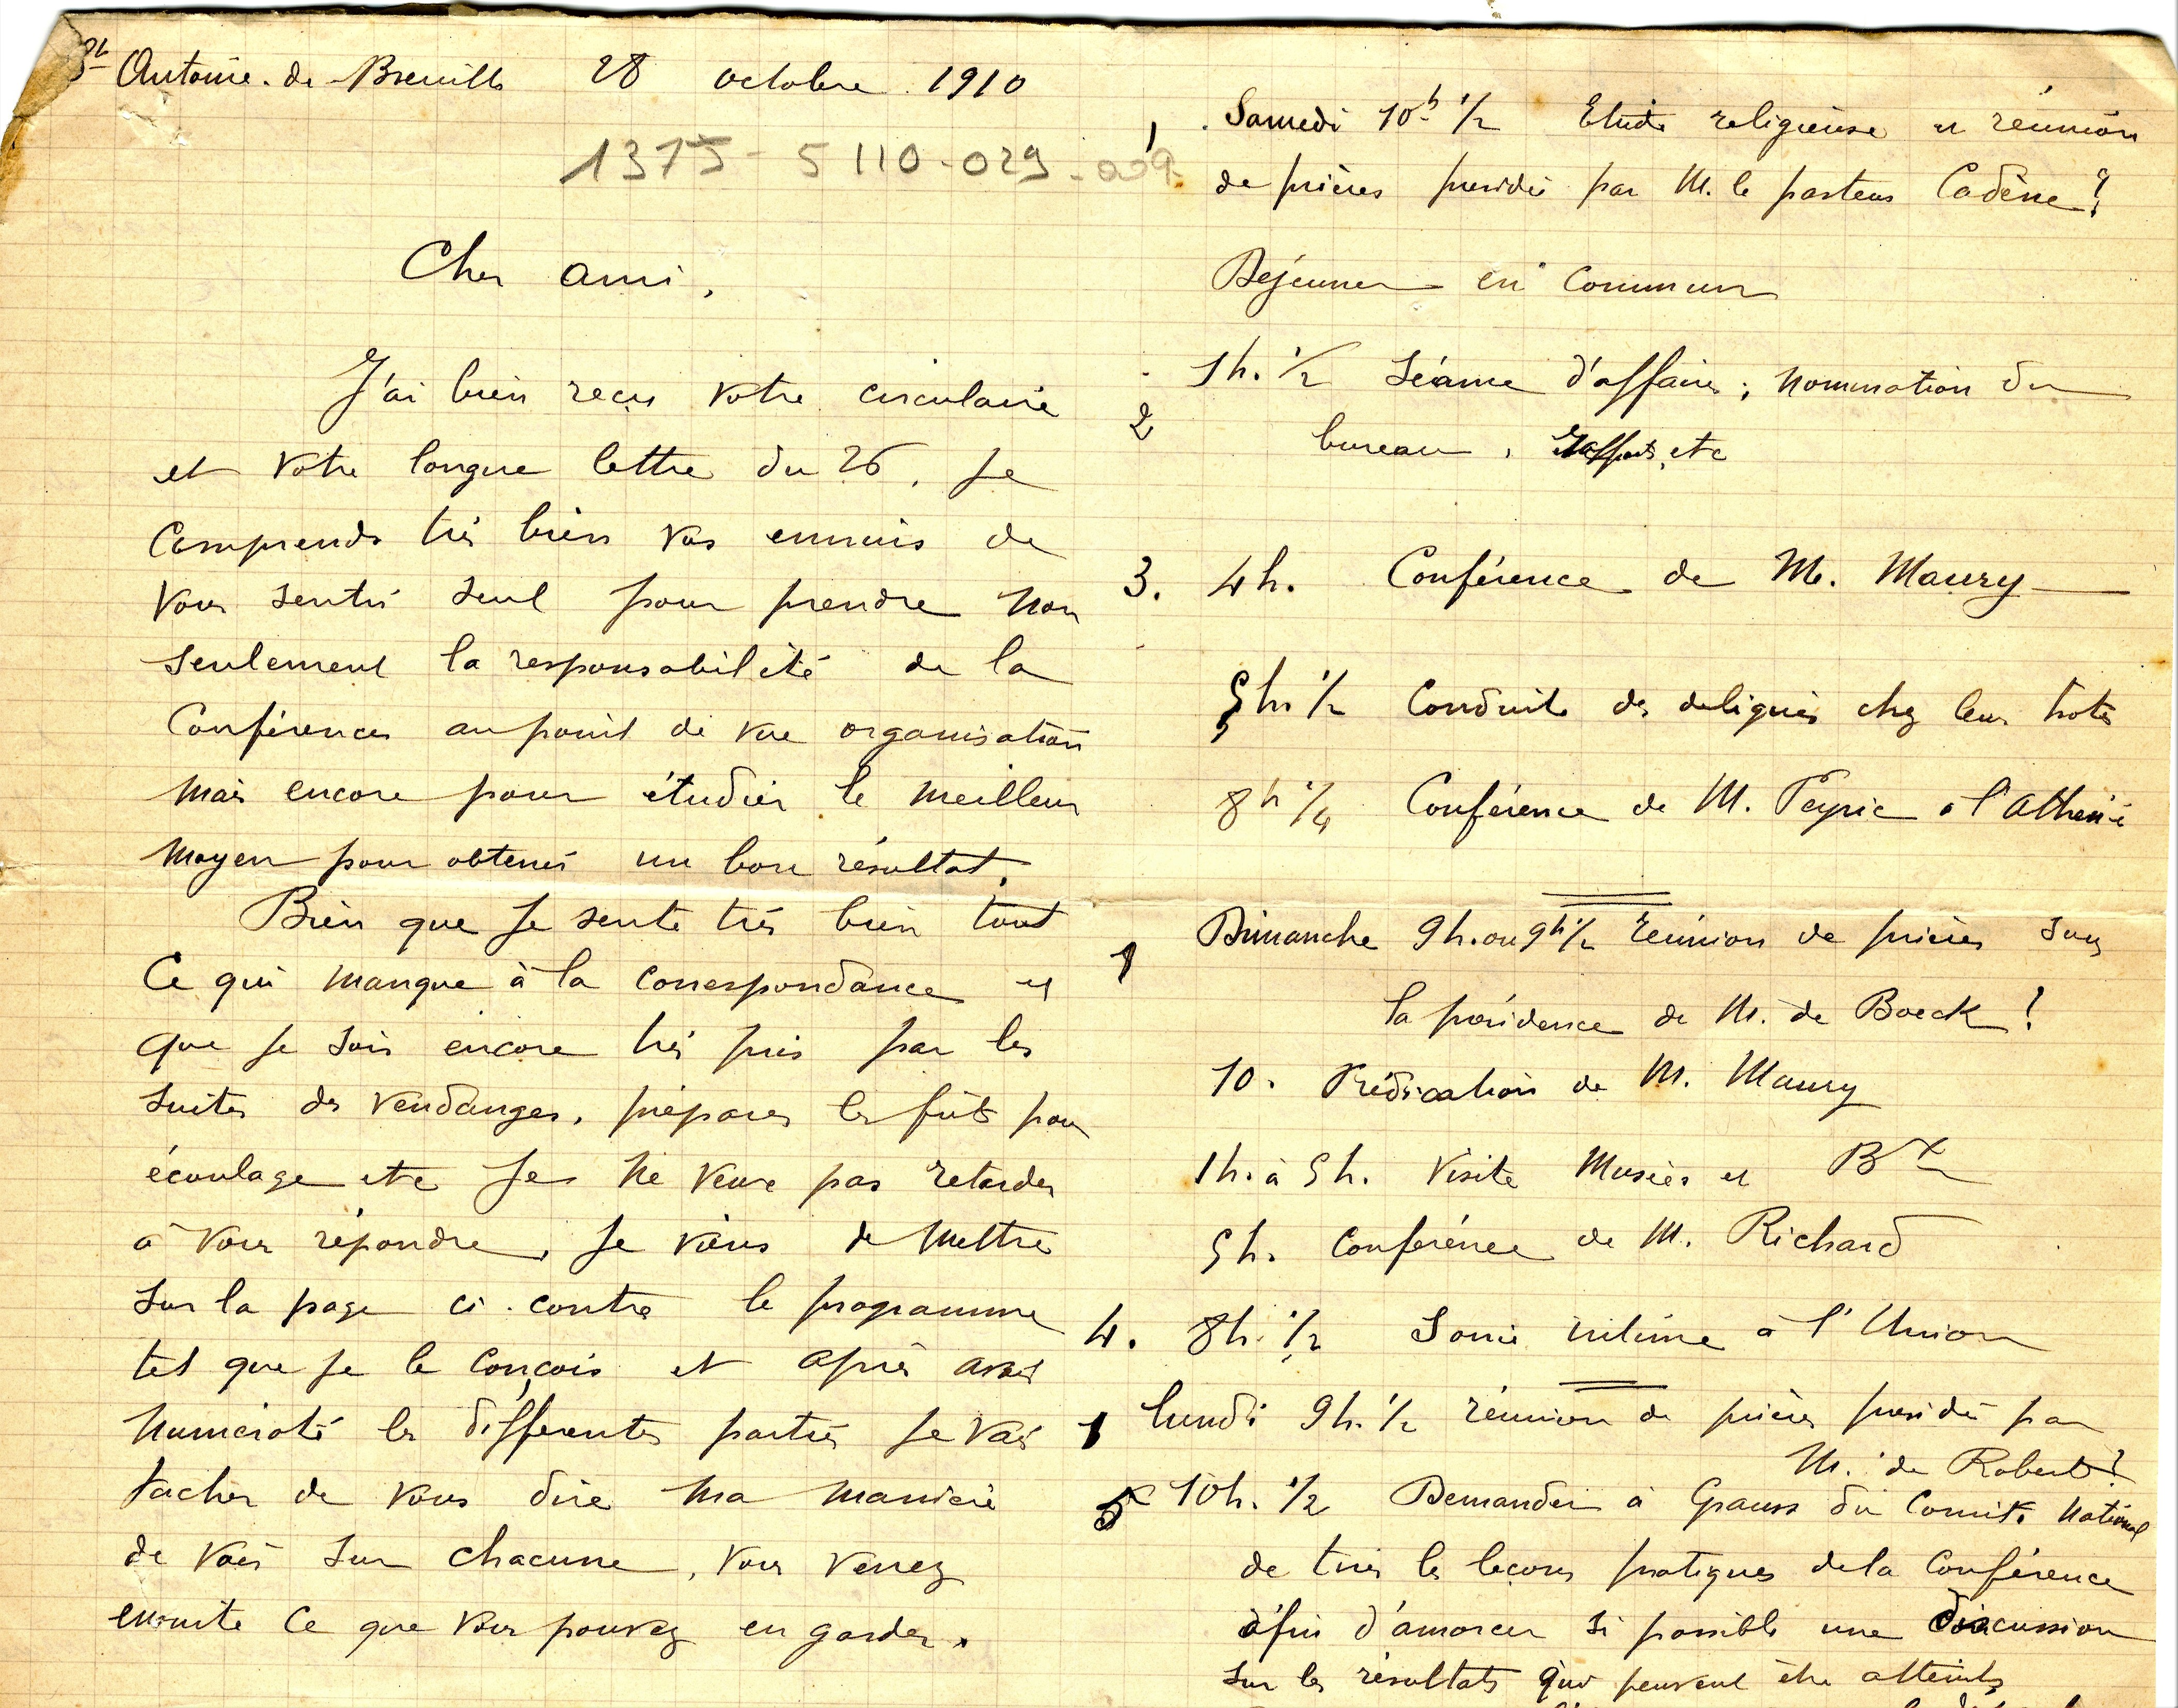 St Antoine-de-Breuilh 28 octobre 1910
1375-5110-029-009
Cher ami,
J'ai bien reçu votre circulaire
et votre longue lettre du 26, Je
comprends très bien vos ennuis de
vous sentir seul pour prendre non
seulement la responsabilité de la
Conférence au point de vue organisation
mais encore pour étudier le meilleur
moyen pour obtenir un bon résultat.
Bien que je sente très bien tout
ce qui manque à la correspondance et
que je sois encore très pris par les
suites des vendanges, préparer les fûts pour
écoulage etc Je ne veux pas retarder
à vous répondre, Je viens de mettre
sur la page ci-contre le programme
tel que je le conçois et après avoir
numéroté les différentes parties je vais
tacher de vous dire ma manière
de voir sur chacune, vous verrez
ensuite ce que vous pouvez en garder.
1. Samedi 10h 1/2 Etude religieuse et réunion
de prières présidée par M. le pasteur Cadène?
Déjeuner en commun
1h. 1/2 Séance d'affaires; nomination du
2 bureau, rapports, etc
3. 4h. Conférence de M. Maury
5h 1/2 Conduite des délégués chez leurs hôtes
8h 1/4 Conférence de M. Peyric à l'Athénée
1 Dimanche 9h. ou 9h 1/2 réunion de prières sous
la présidence de M. de Boeck?
10. Prédication de M. Maury
1h. à 5h. Visite Musées et Bx
5h. Conférence de M. Richard
4. 8h. 1/2 Soirée intime à l'Union
1 lundi 9h. 1/2 réunion de prières présidée par
M. de Robert?
5 10h. 1/2 Demander à Grauss du Comité National
de tirer les leçons pratiques de la Conférence
afin d'amorcer si possible une discussion
sur les résultats qui peuvent être atteints